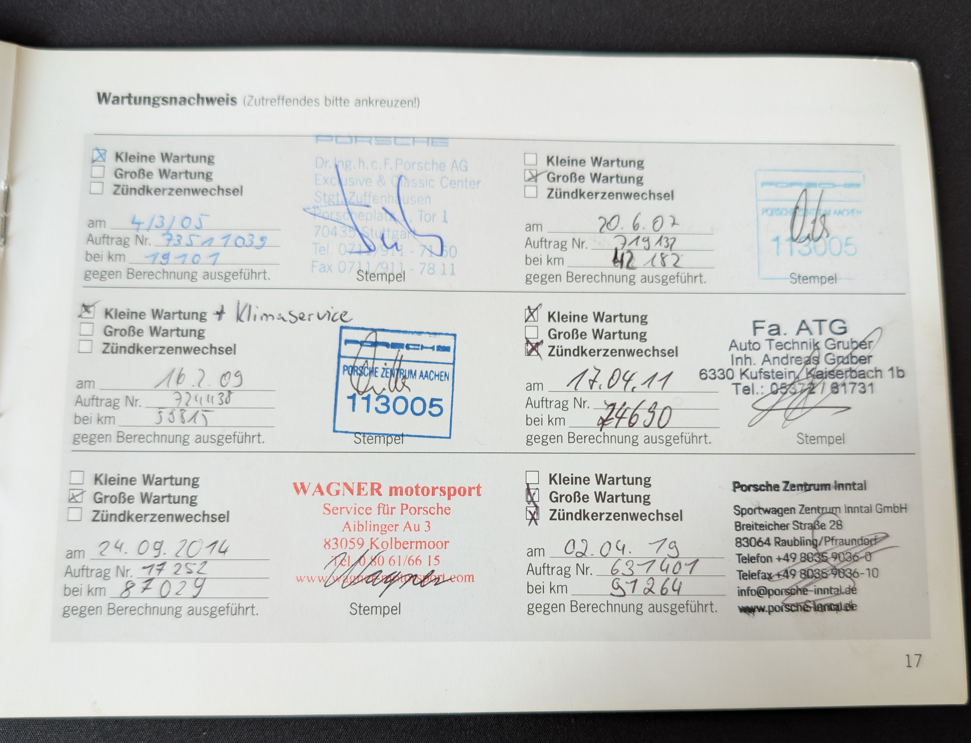 Wartungsnachweis (Zutreffendes bitte ankreuzen!)
Kleine Wartung
Große Wartung
Zündkerzenwechsel
am 4/3/05
Auftrag Nr. 73511039
bei km 19101
gegen Berechnung ausgeführt.
PORSCHE
Dr. Ing. h. c. F. Porsche AG
Exclusive & Classic Center
Stgt. Zuffenhausen
Porscheplatz, Tor 1
70435 Stuttgart
Tel. 0711/911 - 71 60
Fax 0711/911 - 78 11
Stempel
Kleine Wartung
Große Wartung
Zündkerzenwechsel
am 20.6.07
Auftrag Nr. 719132
bei km 42 182
gegen Berechnung ausgeführt.
PORSCHE
PORSCHE ZENTRUM AACHEN
113005
Stempel
Kleine Wartung + Klimaservice
Große Wartung
Zündkerzenwechsel
am 16.2.09
Auftrag Nr.
bei km
gegen Berechnung ausgeführt.
PORSCHE
PORSCHE ZENTRUM AACHEN
113005
Stempel
Kleine Wartung
Große Wartung
Zündkerzenwechsel
am 17.04.11
Auftrag Nr.
bei km 74690
gegen Berechnung ausgeführt.
Fa. ATG
Auto Technik Gruber
Inh. Andreas Gruber
6330 Kufstein, Kaiserbach 1b
Tel.: 05372 / 61731
Stempel
Kleine Wartung
Große Wartung
Zündkerzenwechsel
am 24.09.2014
Auftrag Nr. 17252
bei km 87029
gegen Berechnung ausgeführt.
WAGNER motorsport
Service für Porsche
Aiblinger Au 3
83059 Kolbermoor
Tel. 0 80 61/66 15
www.wagner-motorsport.com
Stempel
Kleine Wartung
Große Wartung
Zündkerzenwechsel
am 02.04.19
Auftrag Nr. 631401
bei km 91264
gegen Berechnung ausgeführt.
Porsche Zentrum Inntal
Sportwagen Zentrum Inntal GmbH
Breiteicher Straße 28
83064 Raubling/Pfraundorf
Telefon +49 8035 9036-0
Telefax +49 8035 9036-10
info@porsche-inntal.de
www.porsche-inntal.de
17